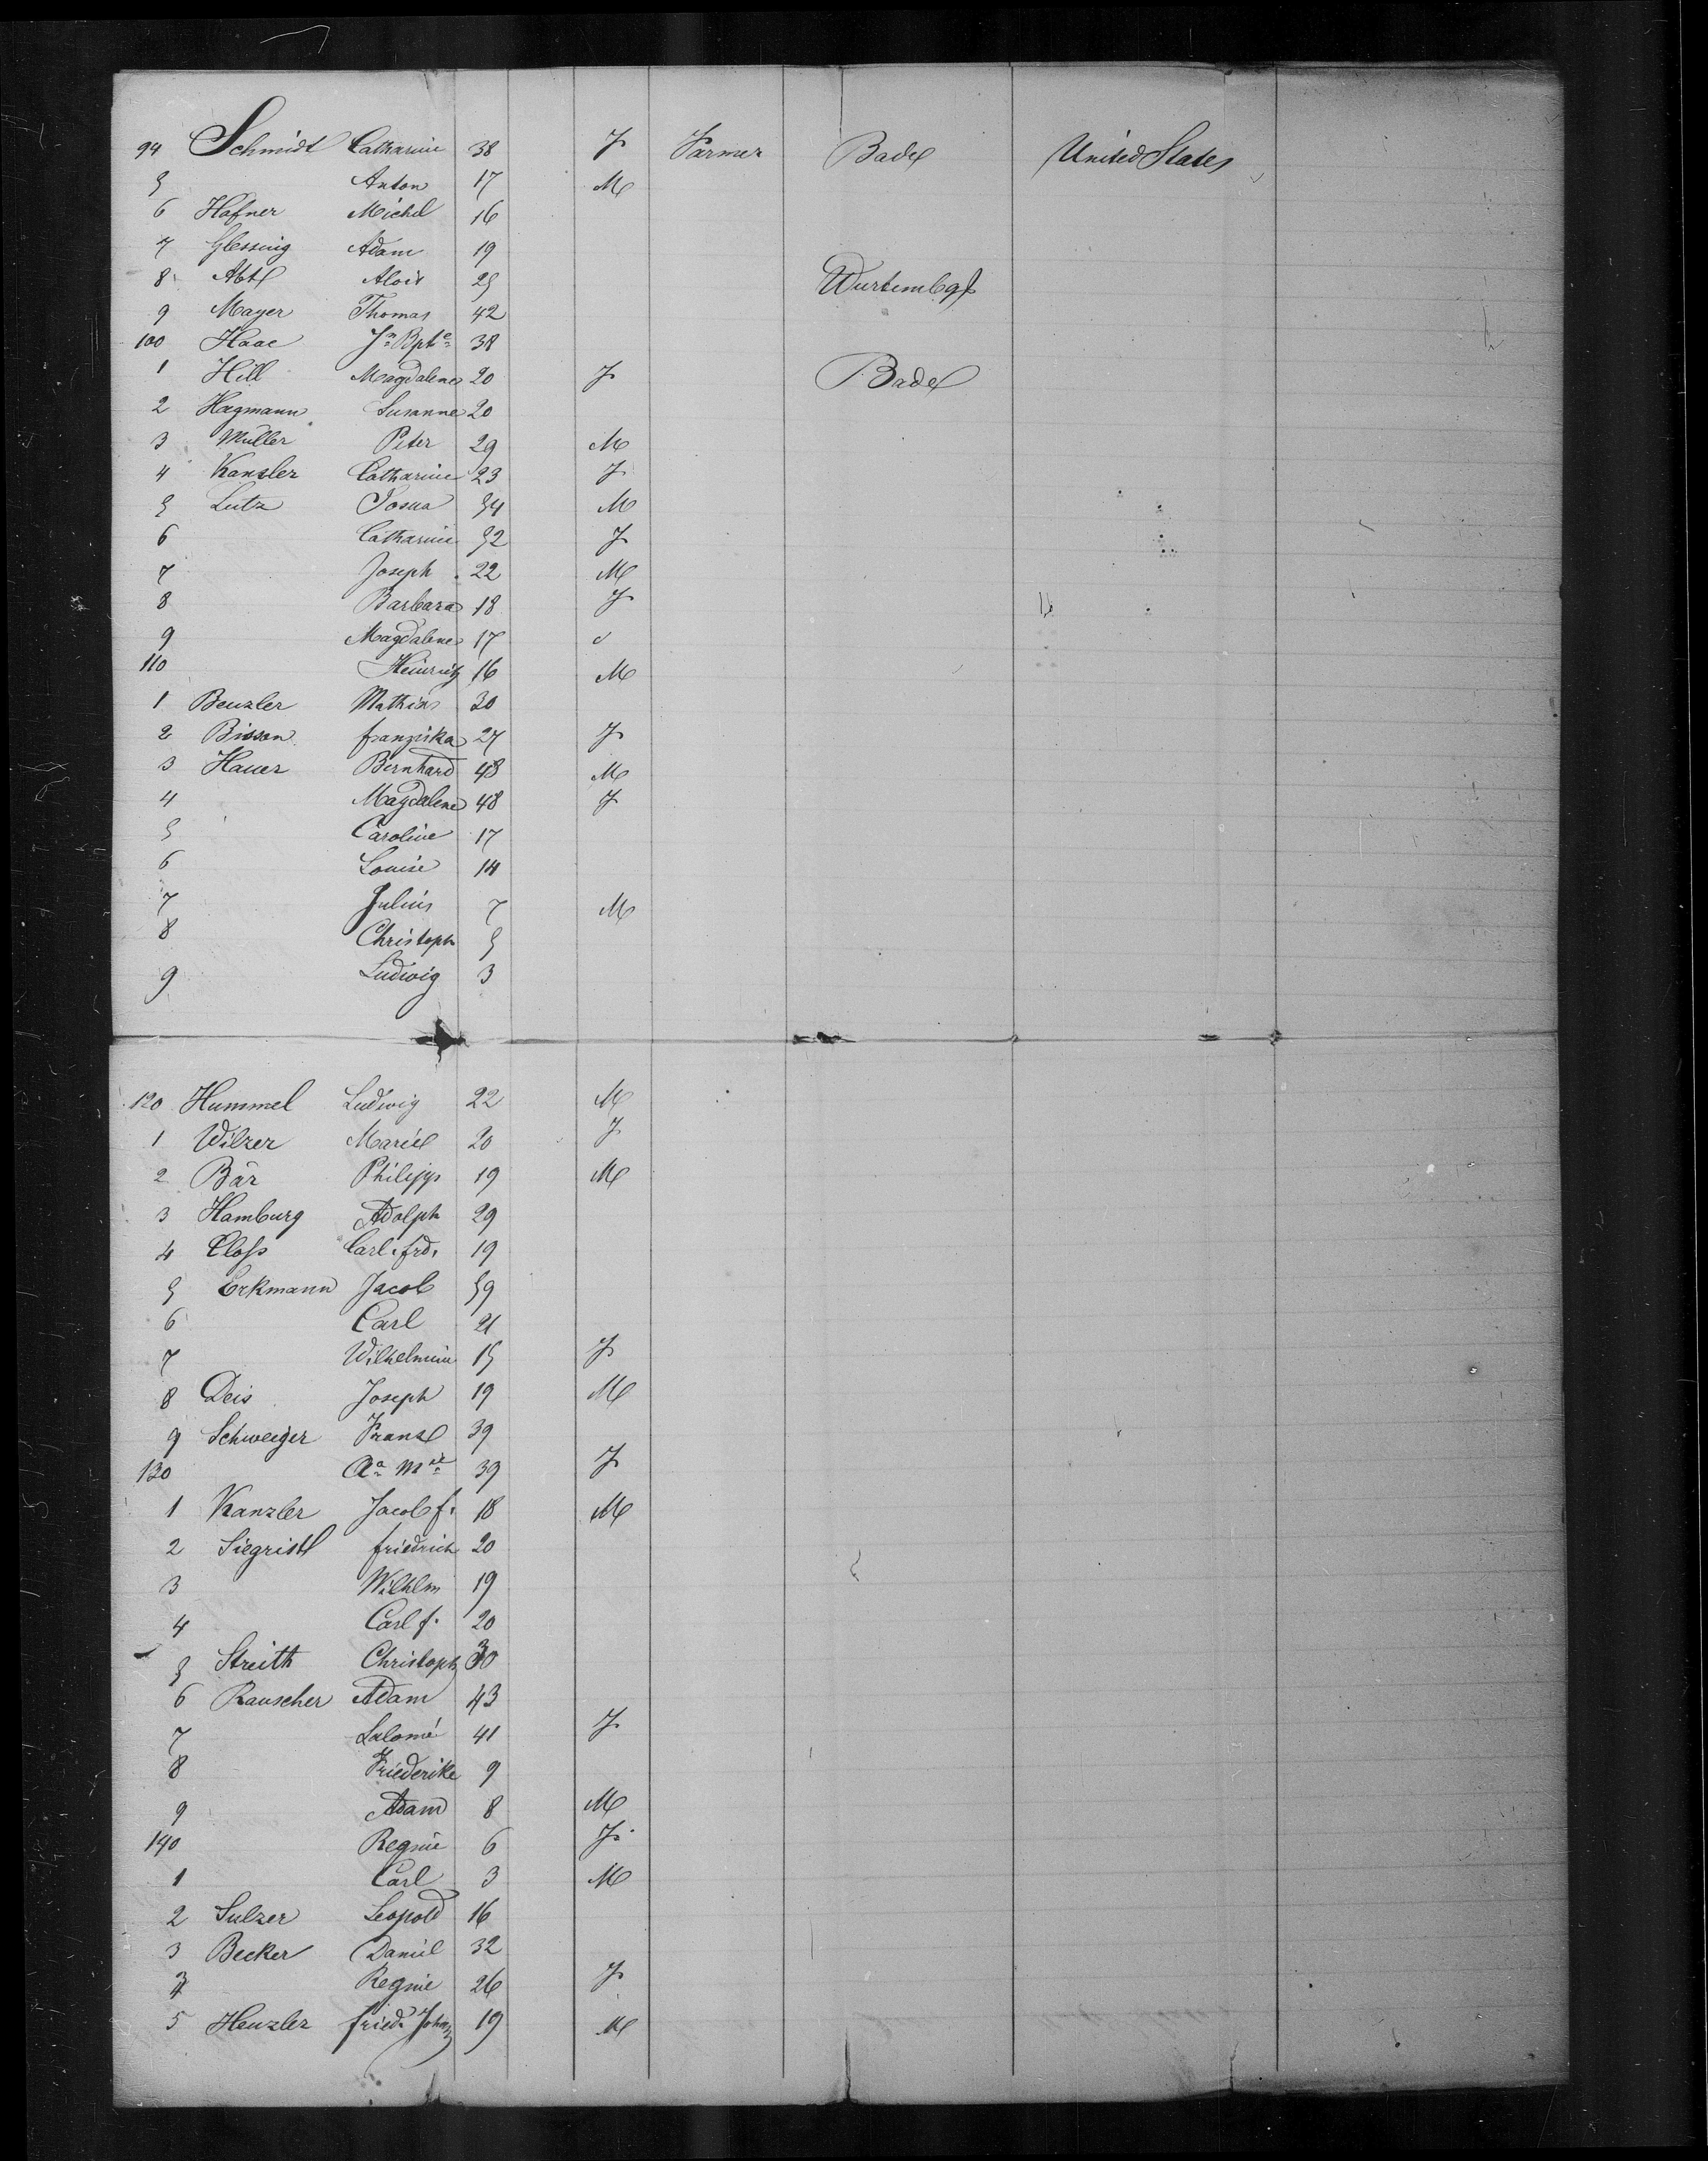 94 Schmidt Catharine 38 F Farmer Bade United States
5 Anton 17 M
6 Hafner Michel 16
7 Glessing Adam 19
8 Abt Alois 25 Wurtembg
9 Mayer Thomas 42
100 Haae Jn Bpte 38
1 Hill Magdalene 20 F Bade
2 Hagmann Susanne 20
3 Müller Peter 29 M
4 Kansler Catharine 23 F
5 Lutz Josua 54 M
6 Catharine 52 F
7 Joseph 22 M
8 Barbara 18 F
9 Magdalene 17
110 Heinrich 16 M
1 Benzler Mathias 30
2 Bisson franziska 27 F
3 Hauer Bernhard 48 M
4 Magdalene 48 F
5 Caroline 17
6 Louise 14
7 Julius 7 M
8 Christoph 5
9 Ludwig 3
120 Hummel Ludwig 22 M
1 Wilzer Marie 20 F
2 Bär Philipp 19 M
3 Hamburg Adolph 29
4 Closs Carl frd. 19
5 Erkmann Jacob 59
6 Carl 21
7 Wilhelmine 15 F
8 Deis Joseph 19 M
9 Schweiger Franz 39
130 Aa Mie 39 F
1 Kanzler Jacob f. 18 M
2 Siegrist friedrich 20
3 Wilhlm 19
4 Carl f. 20
5 Streith Christoph 30
6 Rauscher Adam 43
7 Salomé 41 F
8 Friederike 9
9 Adam 8 M
140 Regine 6 F
1 Carl 3 M
2 Sulzer Leopold 16
3 Becker Daniel 32
4 Regine 26 F
5 Henzler fried. Johann 19 M